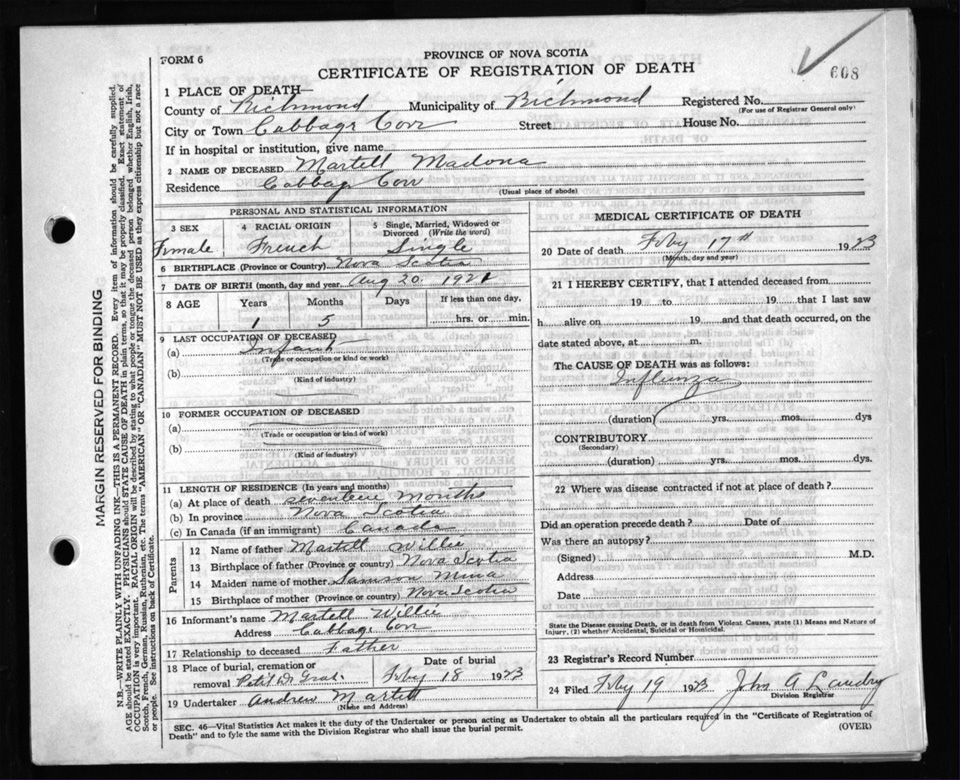 FORM 6
PROVINCE OF NOVA SCOTIA
CERTIFICATE OF REGISTRATION OF DEATH
608
1 PLACE OF DEATH—
County of Richmond Municipality of Richmond Registered No.
(For use of Registrar General only)
City or Town Cabbage Cove Street House No.
If in hospital or institution, give name
2 NAME OF DECEASED Martell Madona
Residence Cabbag Cove
(Usual place of abode)
PERSONAL AND STATISTICAL INFORMATION
3 SEX 4 RACIAL ORIGIN 5 Single, Married, Widowed or Divorced (Write the word)
Female French Single
6 BIRTHPLACE (Province or Country) Nova Scotia
7 DATE OF BIRTH (month, day and year) Aug 20. 1921
8 AGE Years Months Days If less than one day,
1 5 hrs. or min.
9 LAST OCCUPATION OF DECEASED
(a) Infant
(Trade or occupation or kind of work)
(b)
(Kind of industry)
10 FORMER OCCUPATION OF DECEASED
(a)
(Trade or occupation or kind of work)
(b)
(Kind of industry)
11 LENGTH OF RESIDENCE (In years and months)
(a) At place of death seventeen months
(b) In province Nova Scotia
(c) In Canada (if an immigrant) Canada
Parents
12 Name of father Martell Willie
13 Birthplace of father (Province or country) Nova Scotia
14 Maiden name of mother Samson Mina
15 Birthplace of mother (Province or country) Nova Scotia
16 Informant's name Martell Willie
Address Cabbage Cove
17 Relationship to deceased Father
18 Place of burial, cremation or removal Petit De Grat Date of burial Feby 18 1923
19 Undertaker Andrew Martell
(Name and Address)
MEDICAL CERTIFICATE OF DEATH
20 Date of death Feby 17th 1923
(Month, day and year)
21 I HEREBY CERTIFY, that I attended deceased from
19 to 19 that I last saw
h alive on 19 and that death occurred, on the
date stated above, at m.
The CAUSE OF DEATH was as follows:
Influenza
(duration) yrs. mos. dys
CONTRIBUTORY
(Secondary)
(duration) yrs. mos. dys.
22 Where was disease contracted if not at place of death?
Did an operation precede death? Date of
Was there an autopsy?
(Signed) M.D.
Address
Date
State the Disease causing Death, or in death from Violent Causes, state (1) Means and Nature of
Injury, (2) whether Accidental, Suicidal or Homicidal.
23 Registrar's Record Number
24 Filed Feby 19 1923 John A Landry
Division Registrar
SEC. 46—Vital Statistics Act makes it the duty of the Undertaker or person acting as Undertaker to obtain all the particulars required in the "Certificate of Registration of
Death" and to fyle the same with the Division Registrar who shall issue the burial permit. (OVER)
MARGIN RESERVED FOR BINDING
N.B.—WRITE PLAINLY WITH UNFADING INK—THIS IS A PERMANENT RECORD. Every item of information should be carefully supplied.
AGE should be stated EXACTLY. PHYSICIANS should STATE CAUSE OF DEATH in plain terms, so that it may be properly classified. Exact statement of
OCCUPATION is very important. RACIAL ORIGIN will be described by stating to what people or tongue the deceased person belonged whether English, Irish,
Scotch, French, German, Russian, Ruthenian, etc. The terms "AMERICAN" OR "CANADIAN" MUST NOT BE USED as they express citizenship but not a race
or people. See instructions on back of Certificate.